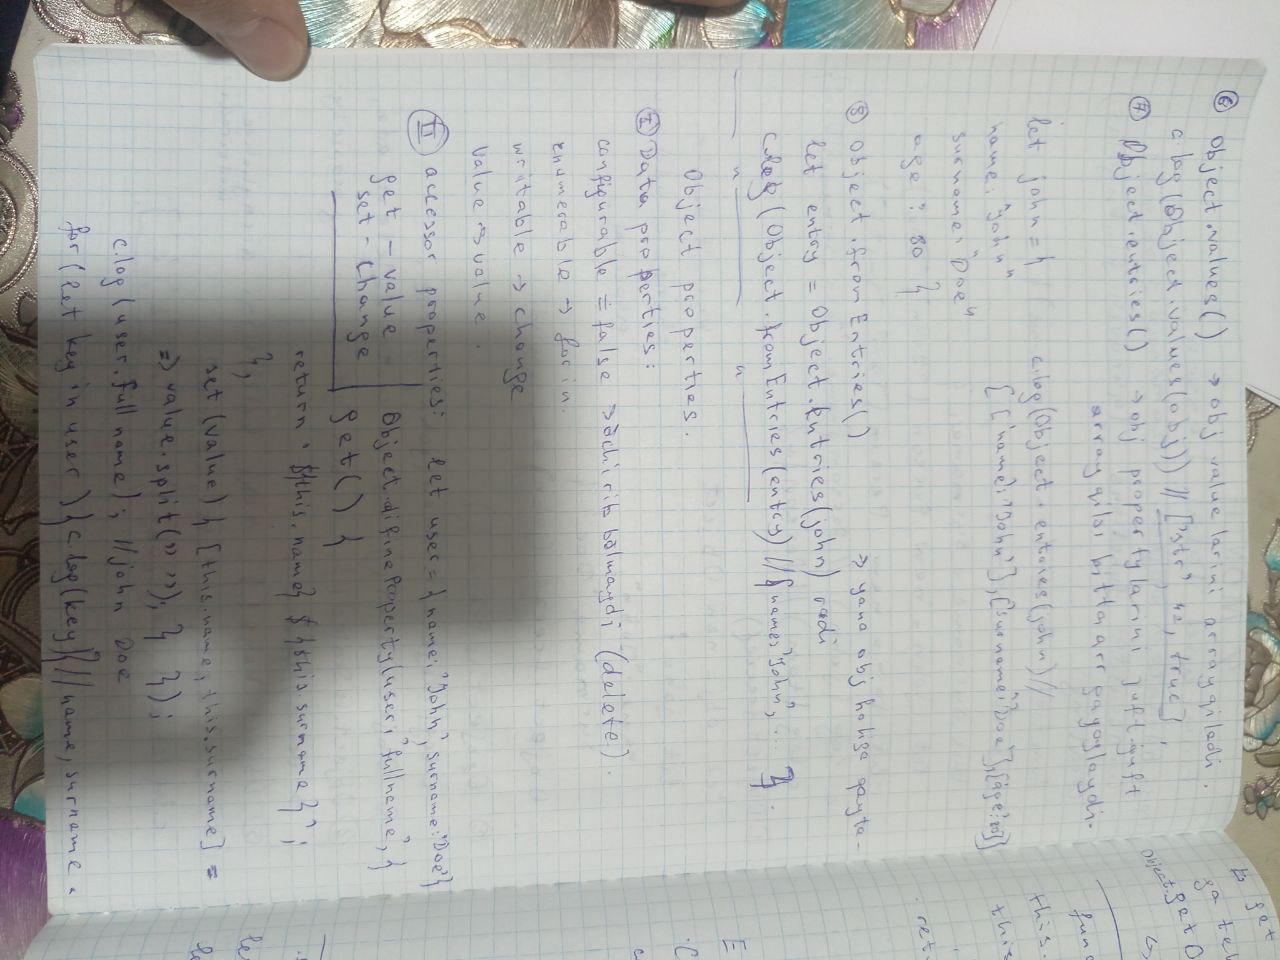 ⑥ Object.values() → obj value larini array qiladi.
c.log(Object.values(obj)) // ["str", 42, true],
⑦ Object.entries() → obj propertylarini juft juft
array qilsi bitta arr ga joylaydi.
let john = { c.log(Object.entries(john)) //
name: "john" [["name":"John"],["surname":"Doe"],["age":80]]
surname: "Doe"
age: 80 }
⑧ Object.fromEntries() → yana obj holiga qayta-
let entry = Object.entries(john) radi
c.log(Object.fromEntries(entry) // { name: "John", ... }.
Object properties.
Ⅰ Data properties:
configurable = false → o'chirib bo'lmaydi (delete).
enumerable → for in.
writable → change
value → value.
Ⅱ accessor properties: let user = { name: "John", surname: "Doe" }
get - value Object.defineProperty(user, "fullname", {
set - change get() {
return `${this.name} ${this.surname}`;
},
set(value) { [this.name, this.surname] =
= value.split(" "); } });
c.log(user.fullname); //john Doe
for(let key in user) { c.log(key)} // name, surname.